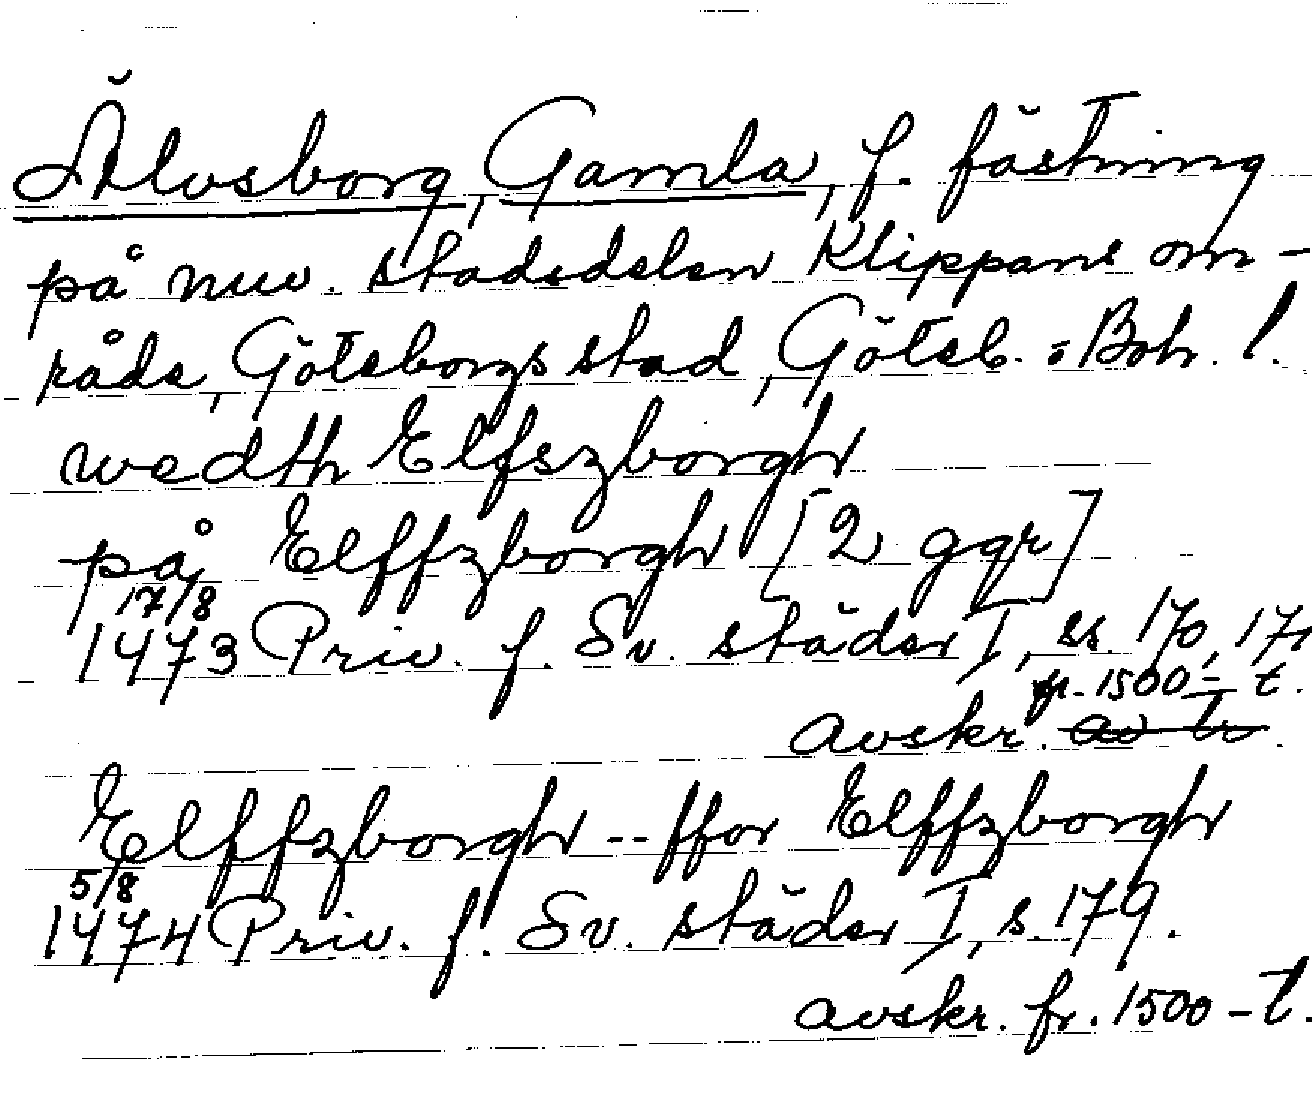 Älvsborg, Gamla, f. fästning
på nuv. stadsdelen Klippans om-
råde, Göteborgs stad, Göteb. o Boh. l.
wedth Elfszborgh
på Elffzborgh [2 ggr]
17/8
1473 Priv. f. Sv. städer I, ss. 170, 171
fr. 1500-t.
avskr. av tr.
Elffzborgh -- ffor Elffzborgh
5/8
1474 Priv. f. Sv. städer I, s. 179.
avskr. fr. 1500-t.